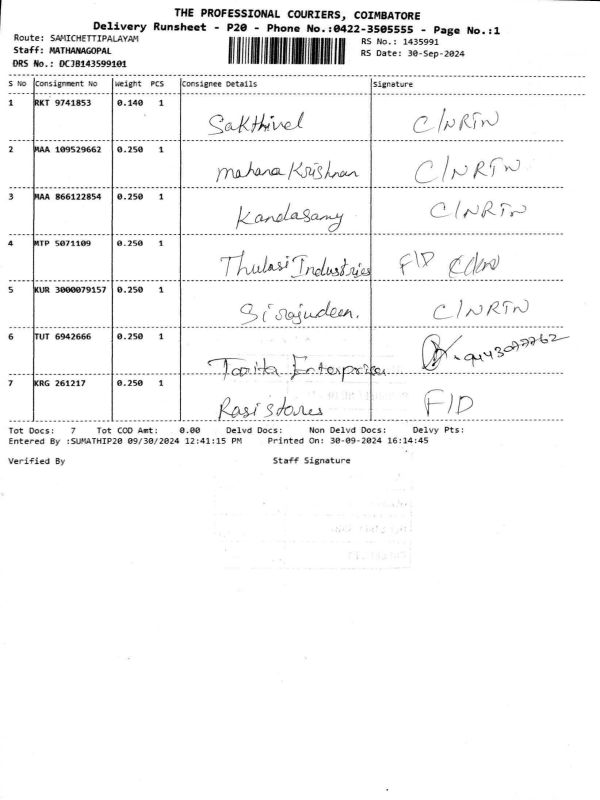 THE PROFESSIONAL COURIERS, COIMBATORE
Delivery Runsheet - P20 - Phone No.:0422-3505555 - Page No.:1
Route: SAMICHETTIPALAYAM RS No.: 1435991
Staff: MATHANAGOPAL RS Date: 30-Sep-2024
DRS No.: DCJB143599101
S No Consignment No Weight PCS Consignee Details Signature
1 RKT 9741853 0.140 1
Sakthivel C/NRTN
2 MAA 109529662 0.250 1
Mohana Krishnan C/NRTN
3 MAA 866122854 0.250 1
Kandasamy C/NRTN
4 MTP 5071109 0.250 1
Thulasi Industries F/D
5 KUR 3000079157 0.250 1
Sirajudeen. C/NRTN
6 TUT 6942666 0.250 1
Enterprises
7 KRG 261217 0.250 1
Rasi Stores F/D
Tot Docs: 7 Tot COD Amt: 0.00 Delvd Docs: Non Delvd Docs: Delvy Pts:
Entered By :SUMATHIP20 09/30/2024 12:41:15 PM Printed On: 30-09-2024 16:14:45
Verified By Staff Signature